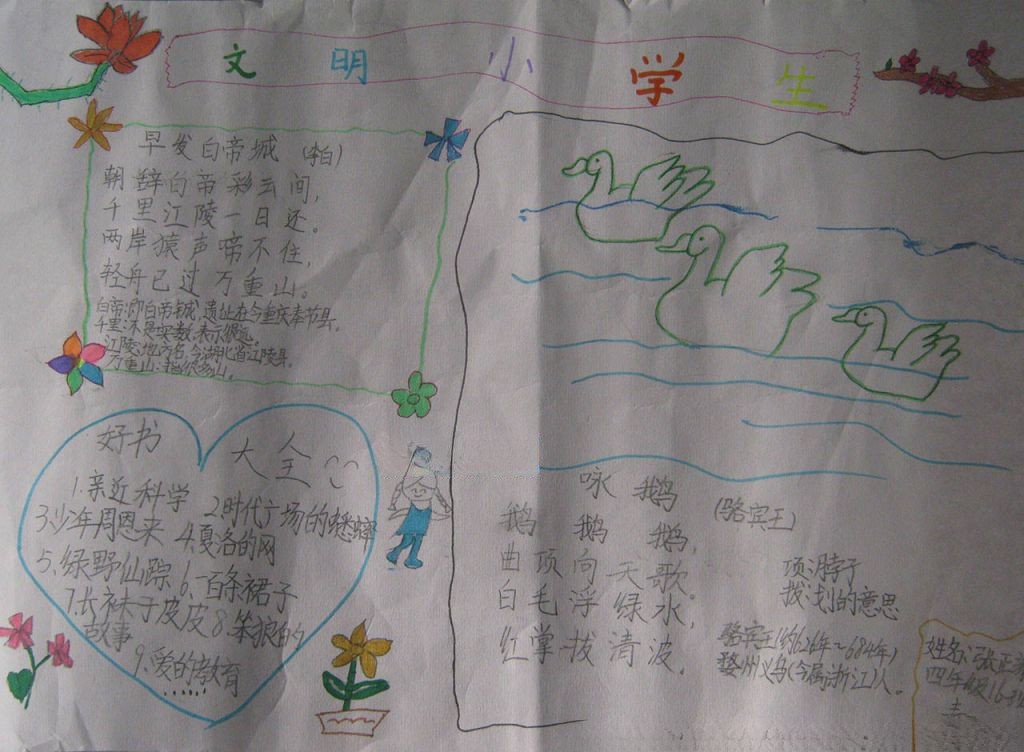 文明小学生
早发白帝城 (李白)
朝辞白帝彩云间,
千里江陵一日还。
两岸猿声啼不住,
轻舟已过万重山。
白帝:即白帝城,遗址在今重庆奉节县。
千里:不是实数,表示很远。
江陵:地方名,今湖北省江陵县。
万重山:指很多山。
好书大全
1.亲近科学
2时代广场的蟋蟀
3.少年周恩来
4.夏洛的网
5.绿野仙踪
6.一百条裙子
7.长袜子皮皮
8.笨狼的
故事
9.爱的教育
......
咏鹅
(骆宾王)
鹅鹅鹅,
曲项向天歌。
白毛浮绿水,
红掌拔清波。
项:脖子
拔:划的意思
骆宾王(约626年~684年)
婺州义乌(今属浙江)人。
姓名:张正
四年级